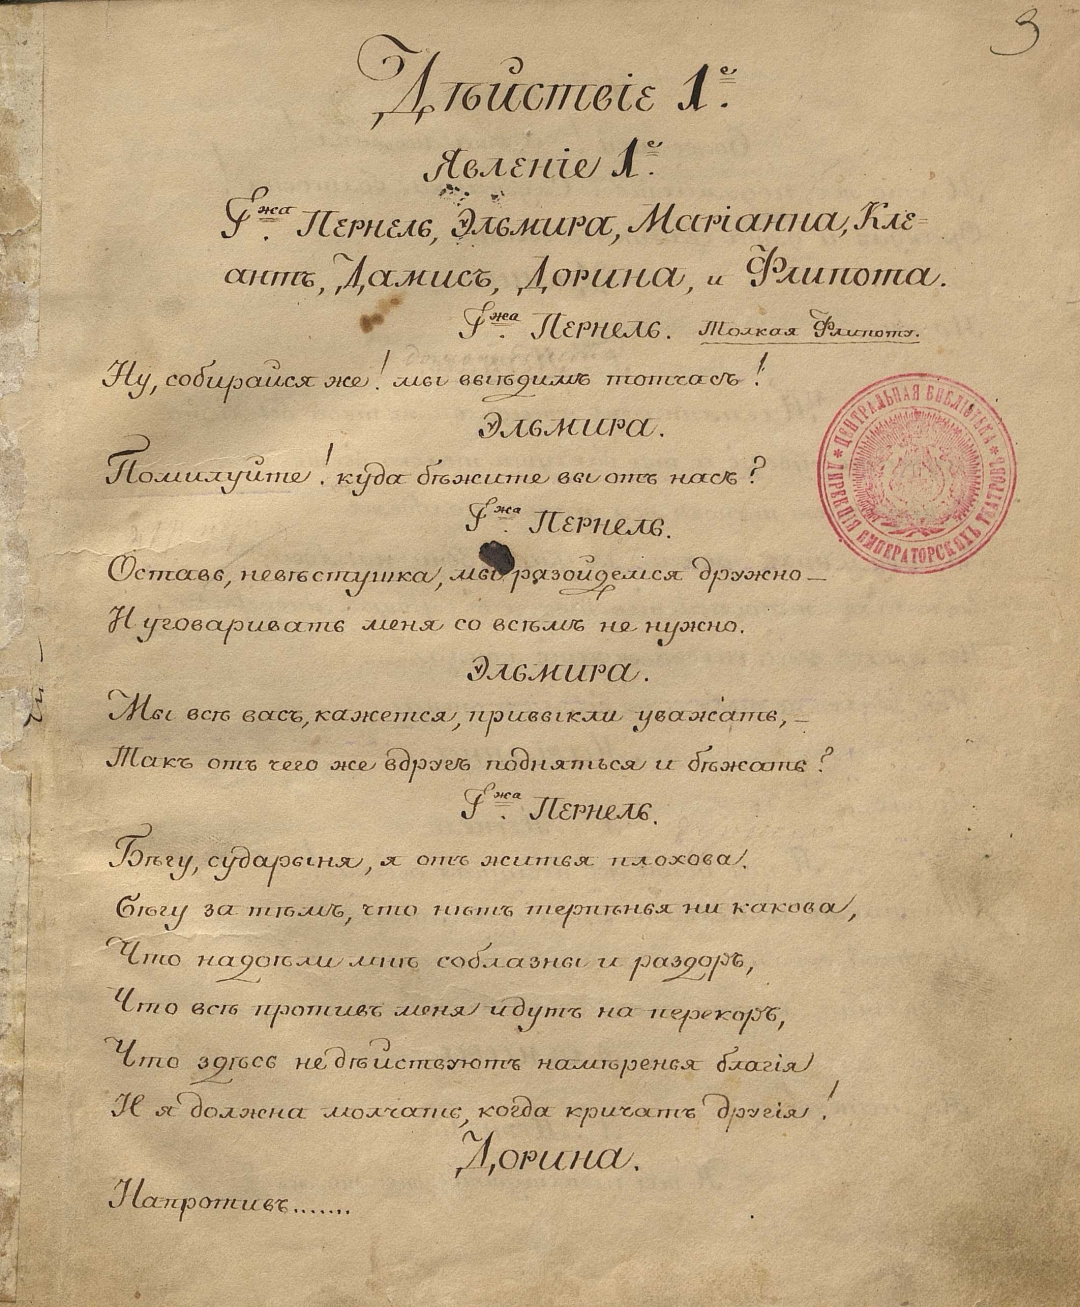 3
Дѣйствіе 1е.
Явленіе 1е.
Гжа Пернель, Эльмира, Маріанна, Кле=
антъ, Дамисъ, Дорина, и Флипота.
Гжа Пернель. Толкая Флипоту.
Ну, собирайся же! мы выѣдимъ тотчасъ!
Эльмира.
Помилуйте! куда бѣжите вы отъ насъ?
Гжа Пернель.
Оставь, невѣстушка, мы разойдемся дружно—
И уговаривать меня со всѣмъ не нужно.
Эльмира.
Мы всѣ васъ, кажется, привыкли уважать,—
Такъ отъ чего же вдругъ подняться и бѣжать?
Гжа Пернель.
Бѣгу, сударыня, я отъ житья плохова.
Бѣгу за тѣмъ, что нѣтъ терпѣнья ни какова,
Что надоѣли мнѣ соблазны и раздоръ,
Что всѣ противъ меня идутъ на перекоръ,
Что здѣсь не дѣйствуютъ намѣренья благія
И я должна молчать, когда кричатъ другія!
Дорина.
Напротивъ.......
ЦЕНТРАЛЬНАЯ БИБЛІОТЕКА * ДИРЕКЦІЯ ИМПЕРАТОРСКИХЪ ТЕАТРОВЪ *